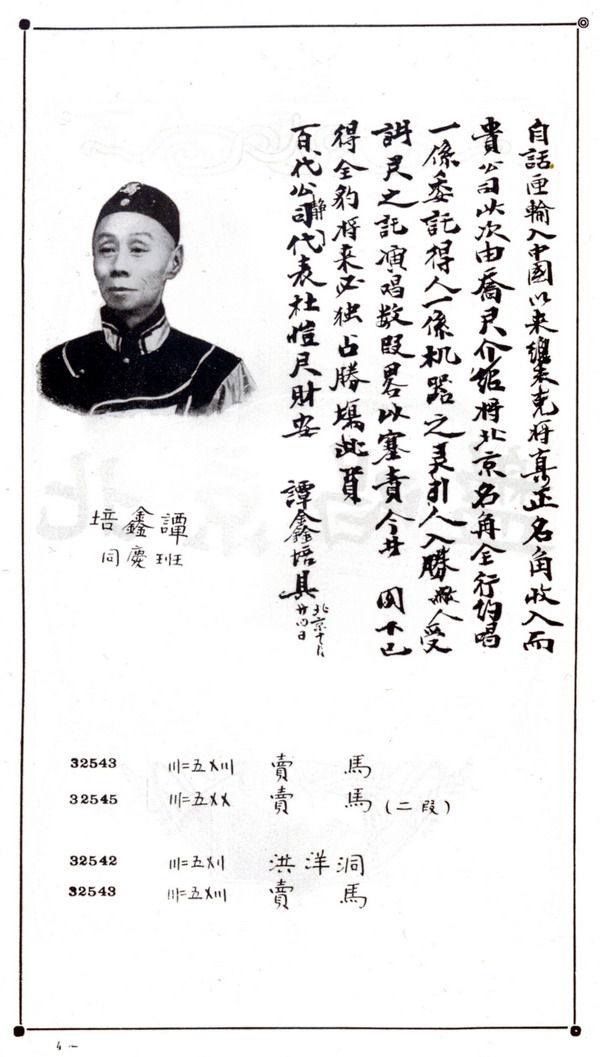 自話匣輸入中國以來總未克將真正名角收入而
貴公司以次由喬君介紹將北京名角全行約唱
一係委託得人一係机器之美引人入勝敝人受
君之託演唱数段畧以塞責今
得全豹將来必独占勝場此
百代公司代表杜 財安
譚鑫培具
北京十月
廿四日
譚鑫培
同慶班
32543 〣二五〤〣 賣馬
32545 〣二五〤〤 賣馬(二段)
32542 〣二五〤〢 洪洋洞
32543 〣二五〤〣 賣馬
4 —